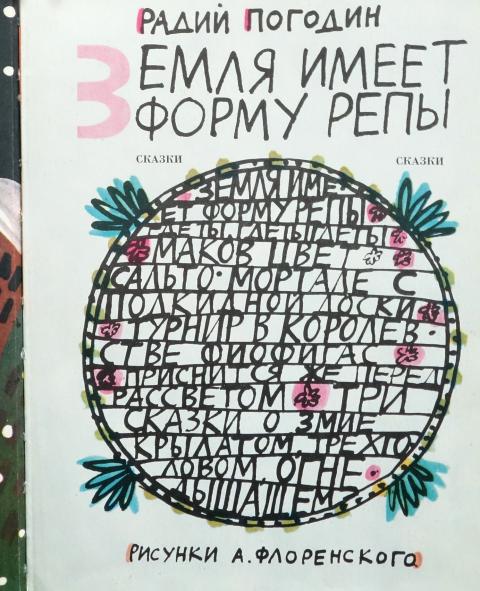 РАДИЙ ПОГОДИН
ЗЕМЛЯ ИМЕЕТ
ФОРМУ РЕПЫ
СКАЗКИ СКАЗКИ
ЗЕМЛЯ ИМЕ-
ЕТ ФОРМУ РЕПЫ
ГДЕ ТЫ, ГДЕ ТЫ, ГДЕ ТЫ
МАКОВ ЦВЕТ
САЛЬТО-МОРТАЛЕ С
ПОДКИДНОЙ ДОСКИ
ТУРНИР В КОРОЛЕВ-
СТВЕ ФИОФИГАС
ПРИСНИТСЯ ЖЕ ПЕРЕД
РАССВЕТОМ ТРИ
СКАЗКИ О ЗМИЕ
КРЫЛАТОМ, ТРЕХГО
ЛОВОМ, ОГНЕ
ДЫШАЩЕМ
РИСУНКИ А. ФЛОРЕНСКОГО